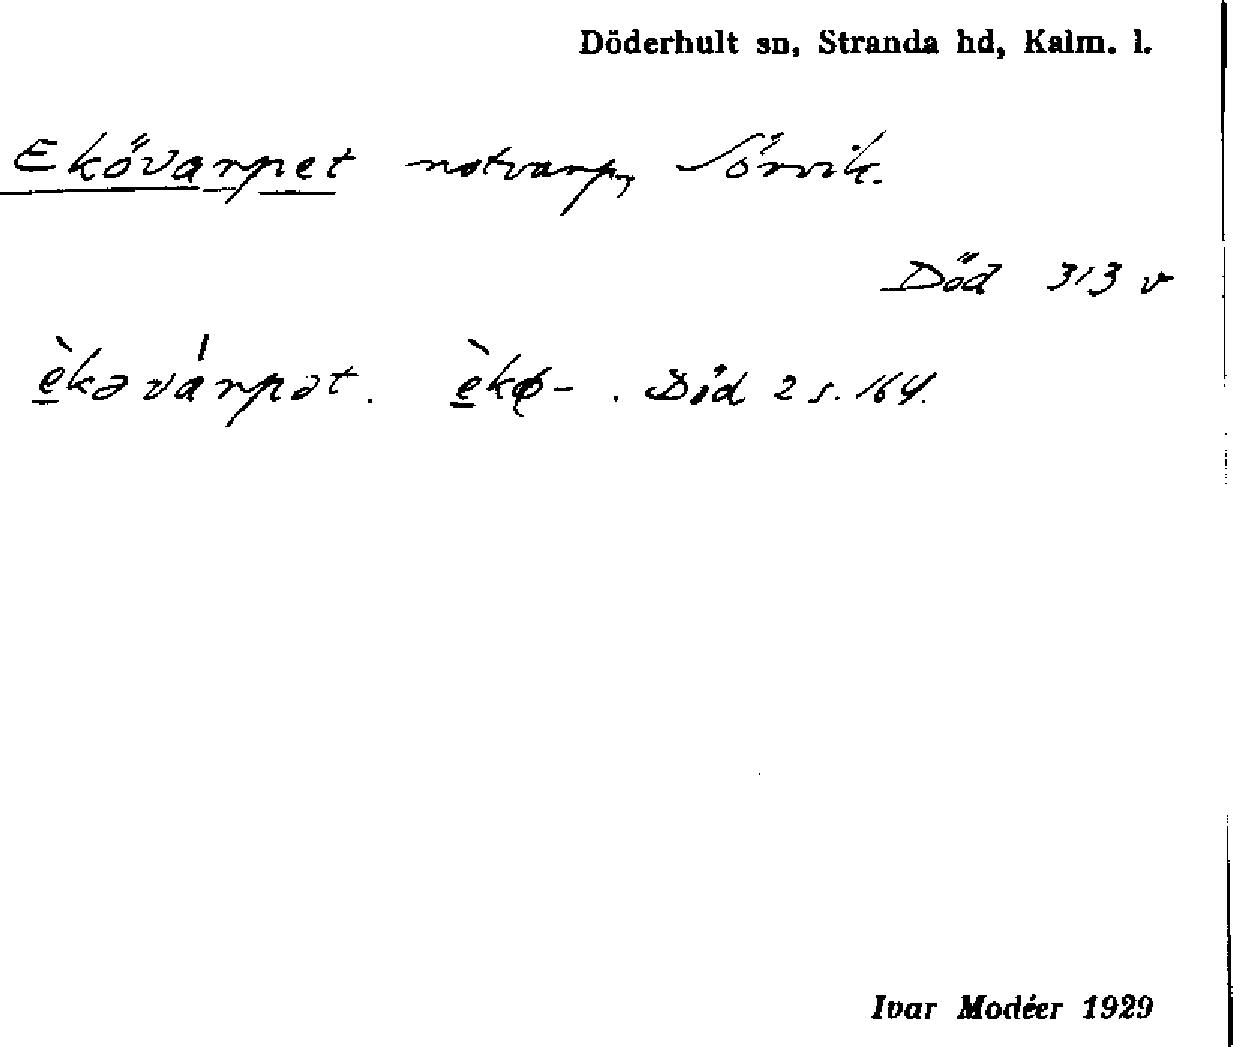 Döderhult sn, Stranda hd, Kalm. l.
Ekövarpet notvarp, Sörvik.
Död 313 v
èkəvárpət. èkø- . Död 2 s. 164.
Ivar Modéer 1929